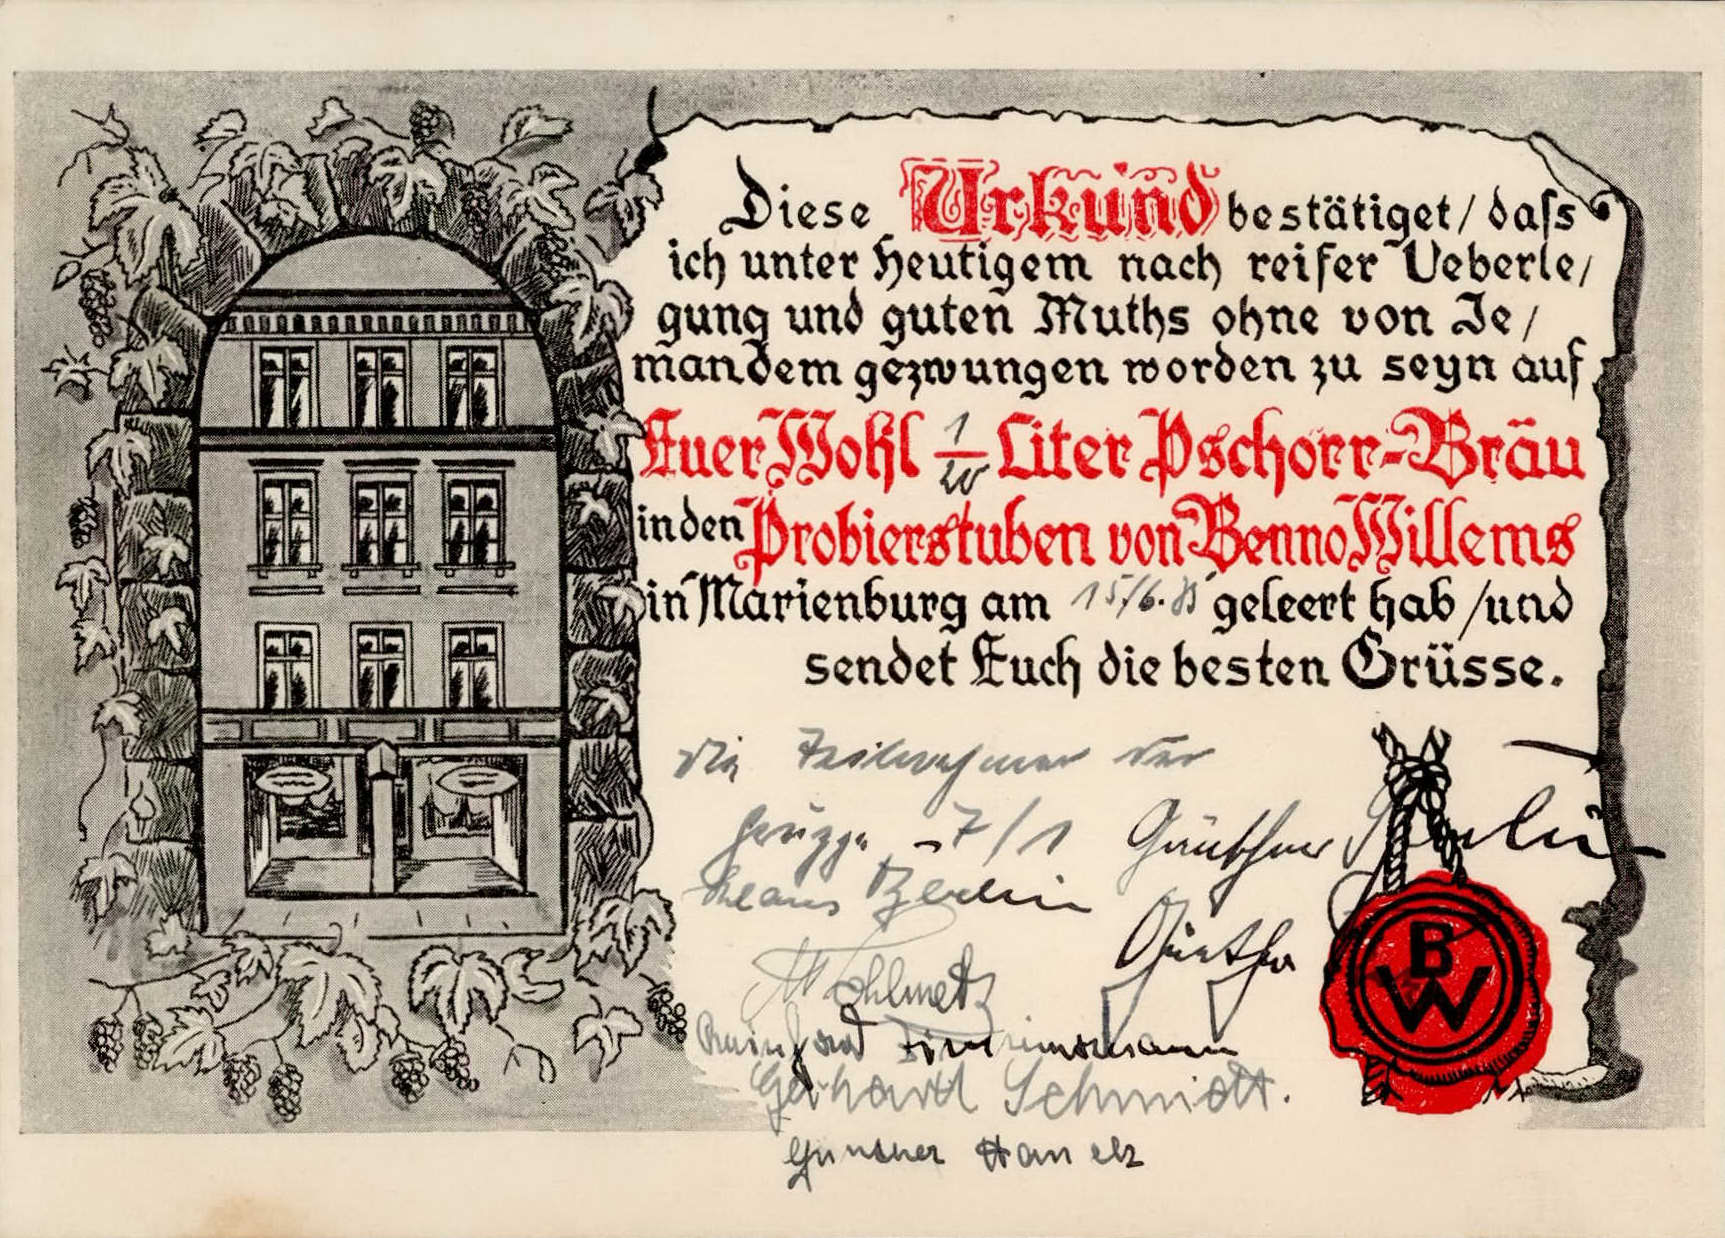 Diese Urkund bestätiget/ dass
ich unter Heutigem nach reifer Ueberle/
gung und guten Muths ohne von Je/
mandem gezwungen worden zu seyn auf
Euer Wohl 1/20 Liter Pschorr-Bräu
in den Probierstuben von Benno Willems
in Marienburg am 15/6. geleert hab/und
sendet Euch die besten Grüsse.
die Teilnehmer der
Gruppe 7/1 Günther
Berlin
Günther
Zimmermann
Gerhard Schmidt.
Günther
B
W